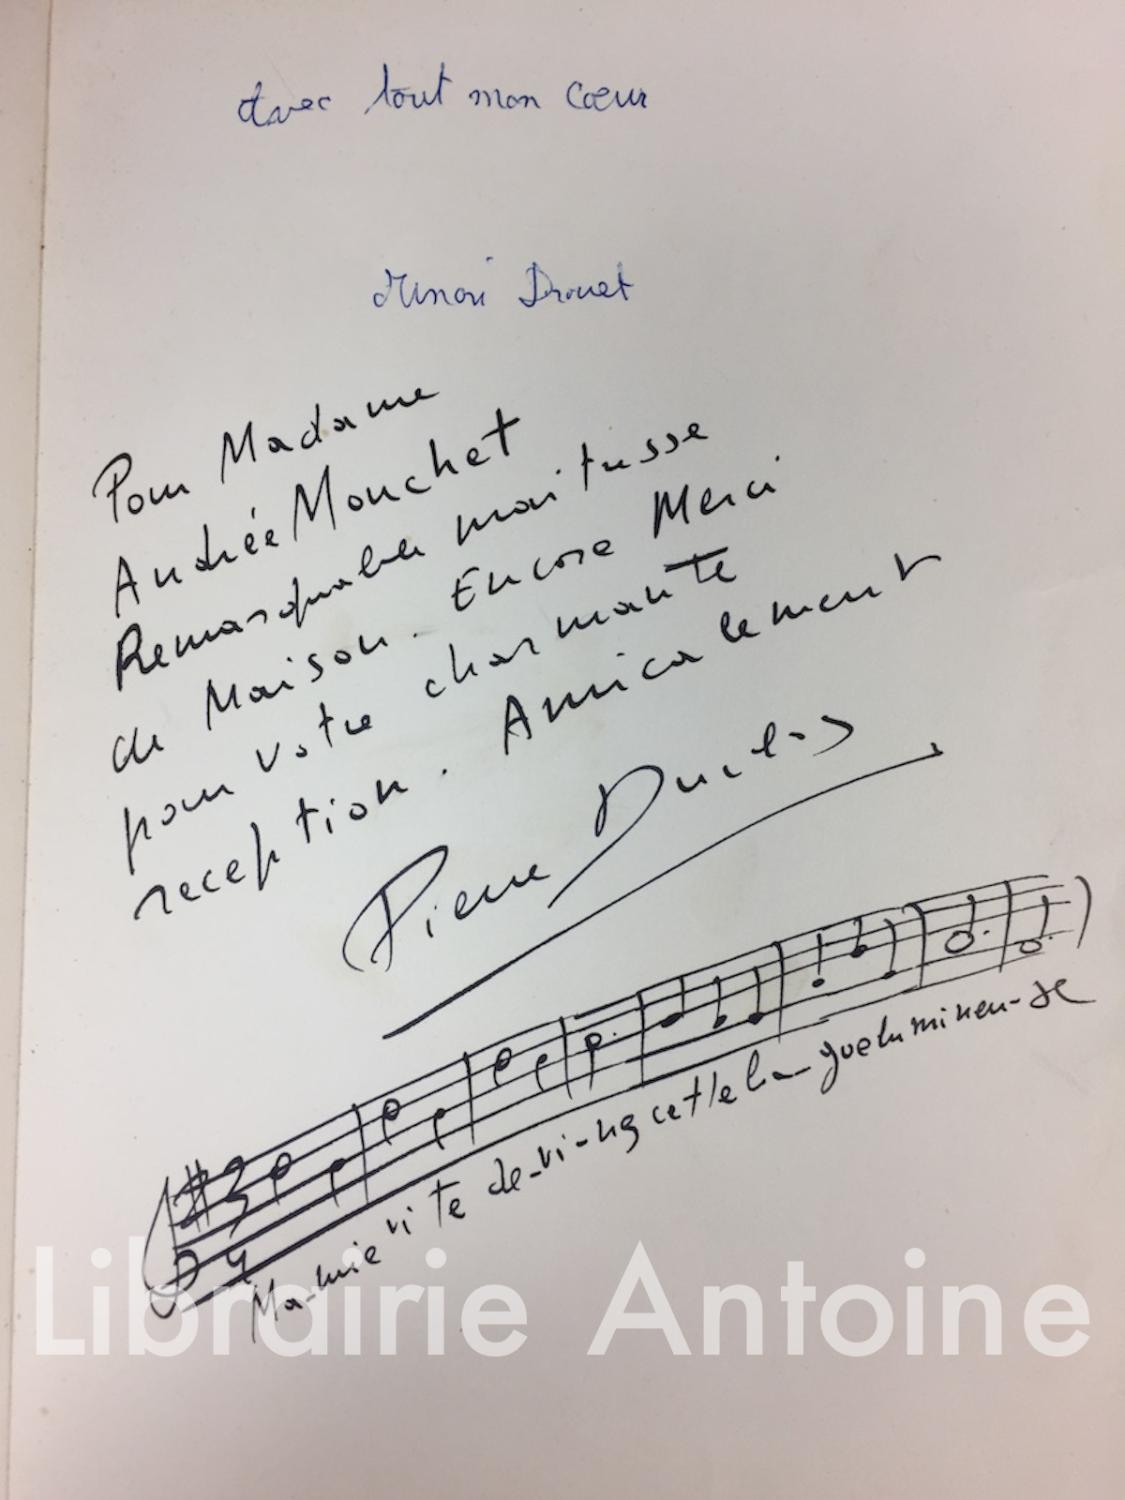 avec tout mon cœur
Minou Drouet
Pour Madame
Andrée Mouchet
Remarquable maitresse
de Maison. Encore Merci
pour votre charmante
reception. Amicalement
Pierre Duclos
3
4
Ma-mie vi te de-vi-ns cet/te ba-gue lu mi neu-se
Librairie Antoine